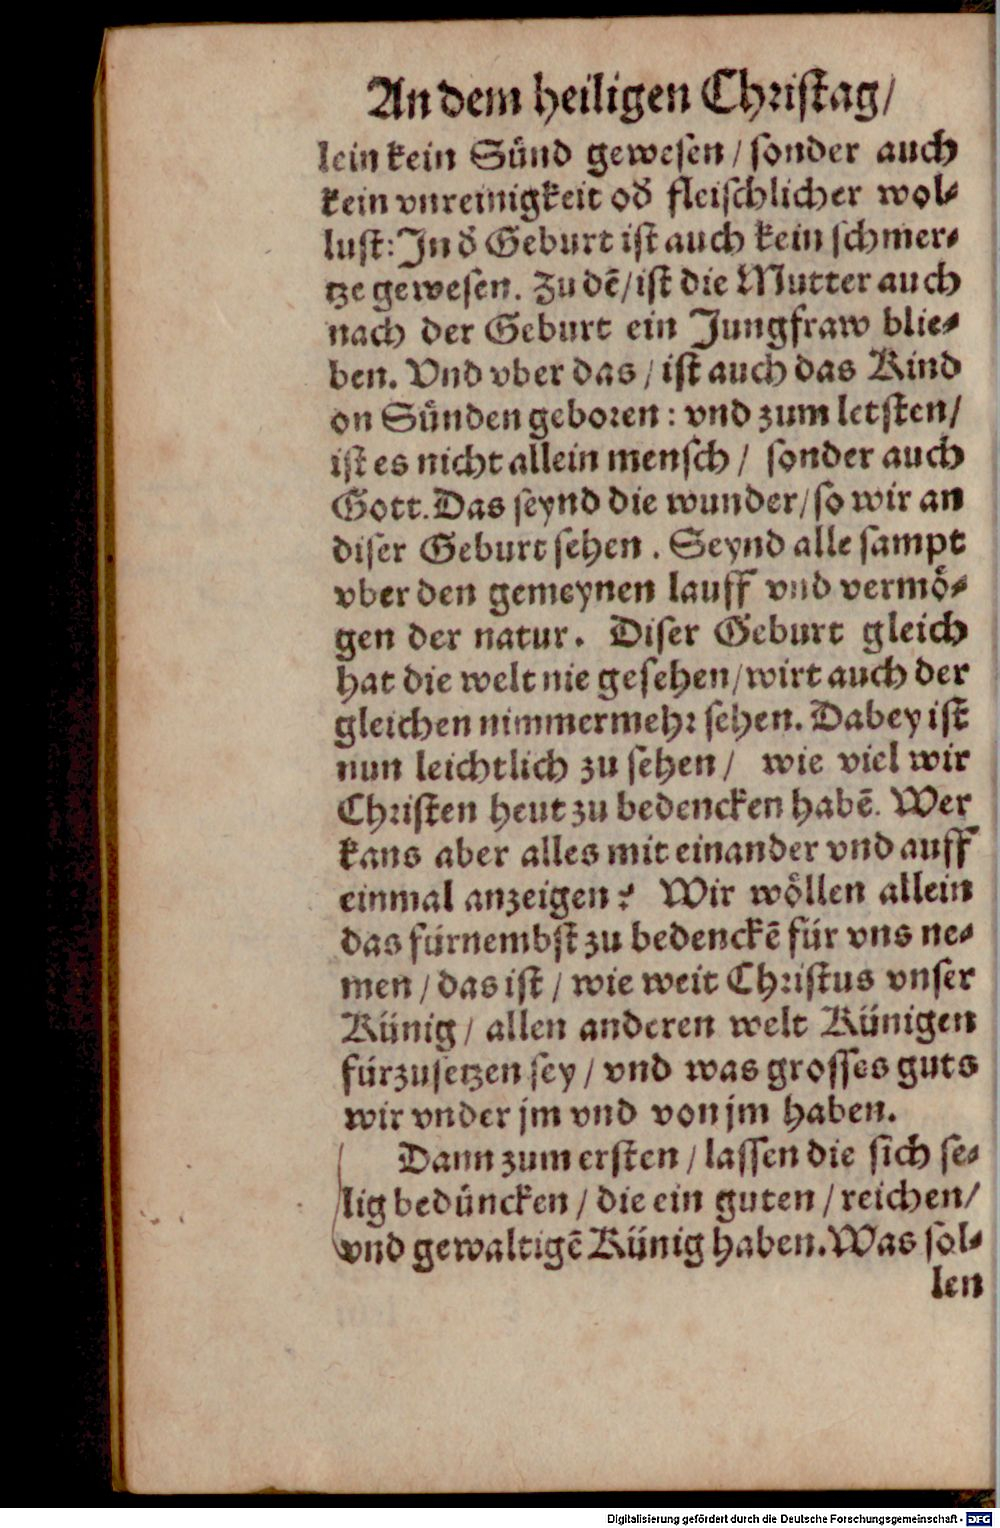 An dem heiligen Christag/
lein kein Sünd gewesen / sonder auch
kein vnreinigkeit od̕ fleischlicher wol⸗
lust: In d̕ Geburt ist auch kein schmer⸗
tze gewesen. Zu dē/ ist die Mutter auch
nach der Geburt ein Jungfraw blie⸗
ben. Vnd vber das / ist auch das Kind
on Sünden geboren : vnd zum letsten/
ist es nicht allein mensch / sonder auch
Gott. Das seynd die wunder/ so wir an
diser Geburt sehen . Seynd alle sampt
vber den gemeynen lauff vnd vermö⸗
gen der natur. Diser Geburt gleich
hat die welt nie gesehen/ wirt auch der
gleichen nimmermehr sehen. Dabey ist
nun leichtlich zu sehen / wie viel wir
Christen heut zu bedencken habē. Wer
kans aber alles mit einander vnd auff
einmal anzeigen? Wir wöllen allein
das fürnembst zu bedenckē für vns ne⸗
men / das ist / wie weit Christus vnser
Künig / allen anderen welt Künigen
fürzusetzen sey / vnd was grosses guts
wir vnder jm vnd von jm haben.
Dann zum ersten / lassen die sich se⸗
lig bedüncken / die ein guten / reichen/
vnd gewaltigē Künig haben. Was sol⸗
len
Digitalisierung gefördert durch die Deutsche Forschungsgemeinschaft - DFG